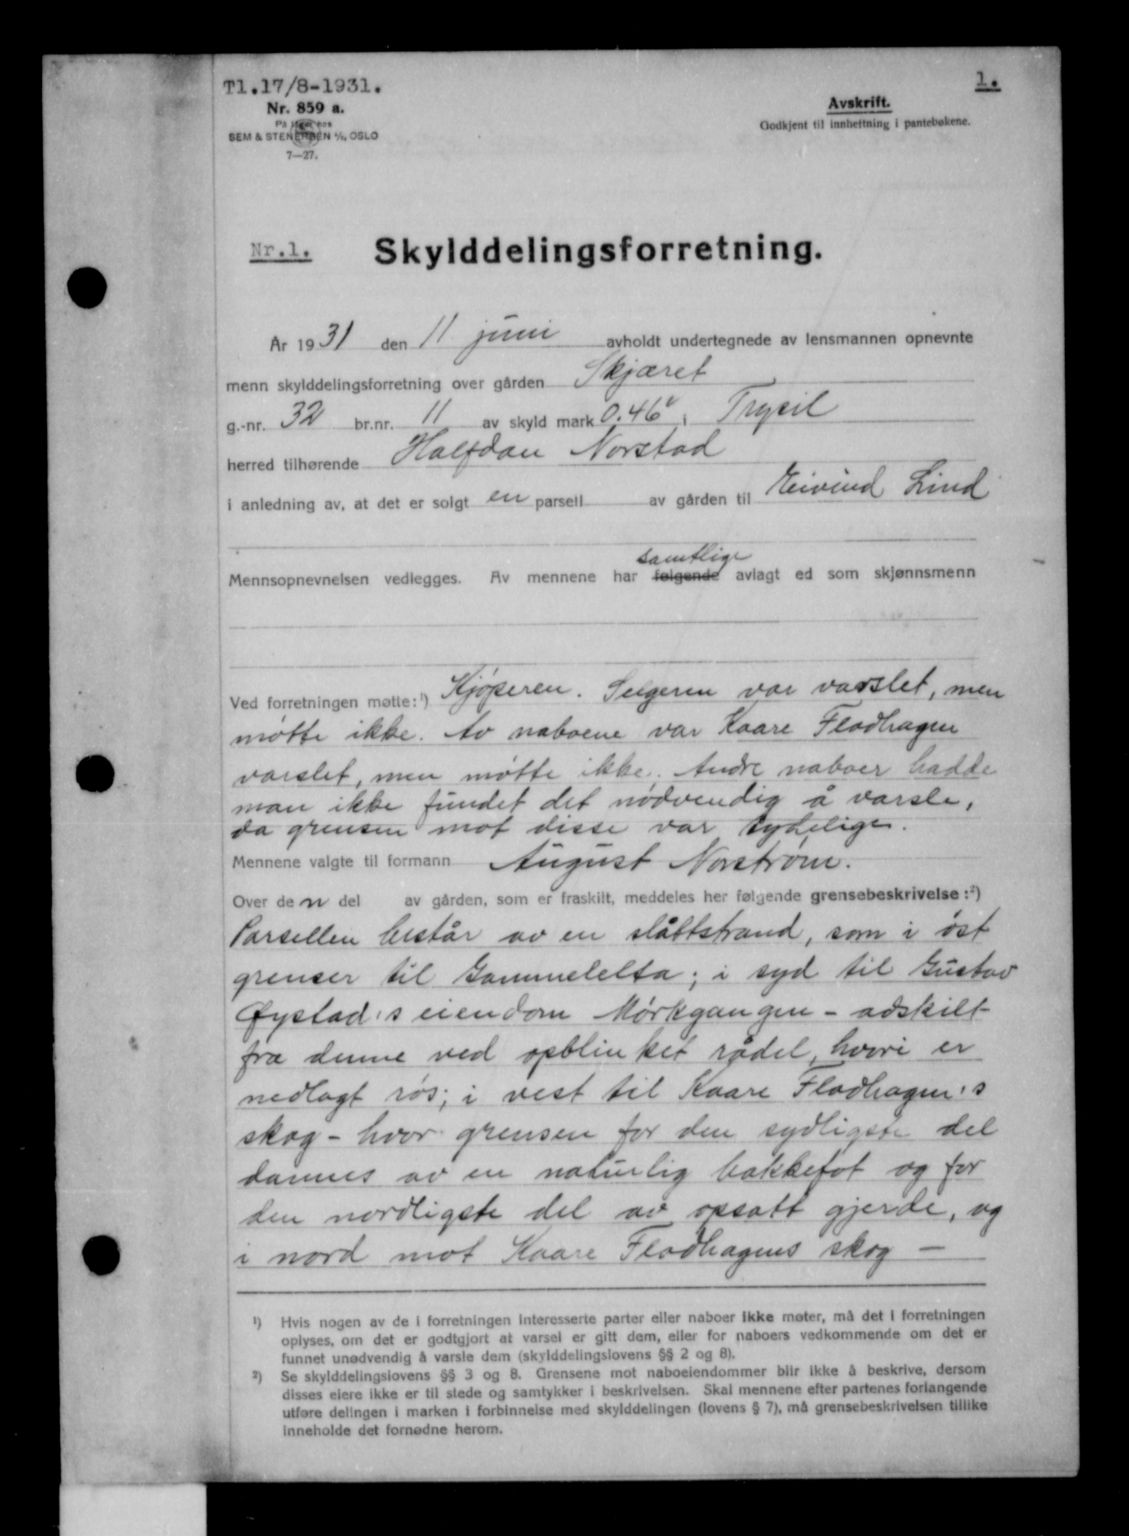 Tl.17/8-1931.
1.
Nr. 859 a.
SEM & STENERSEN A/S, OSLO
7—27.
Avskrift.
Godkjent til innheftning i pantebøkene.
Nr.1. Skylddelingsforretning.
År 1931 den 11 juni avholdt undertegnede av lensmannen opnevnte
menn skylddelingsforretning over gården Skjæret
g.-nr. 32 br.nr. 11 av skyld mark 0.46 i Trysil
herred tilhørende Halfdan Norstad
i anledning av, at det er solgt en parsell av gården til Eivind Lind
samtlige
Mennsopnevnelsen vedlegges. Av mennene har følgende avlagt ed som skjønnsmenn
Ved forretningen møtte:¹) Kjøperen. Selgeren var varslet, men
møtte ikke. Av naboene var Kaare Flodhagen
varslet, men møtte ikke. Andre naboer hadde
man ikke fundet det nødvendig å varsle,
da grensen mot disse var tydelige.
Mennene valgte til formann August Norstrøm.
Over den del av gården, som er fraskilt, meddeles her følgende grensebeskrivelse:²)
Parsellen består av en slåttstrand, som i øst
grenser til Gammelelta; i syd til Gustav
Øystad's eiendom Mørkgangen - adskilt
fra denne ved opblinket rådel, hvori er
nedlagt røs; i vest til Kaare Flodhagen's
skog - hvor grensen for den sydligste del
dannes av en naturlig bakkefot og for
den nordligste del av opsatt gjerde, og
i nord mot Kaare Flodhagens skog —
¹) Hvis nogen av de i forretningen interesserte parter eller naboer ikke møter, må det i forretningen
oplyses, om det er godtgjort at varsel er gitt dem, eller for naboers vedkommende om det er
funnet unødvendig å varsle dem (skylddelingslovens §§ 2 og 8).
²) Se skylddelingslovens §§ 3 og 8. Grensene mot naboeiendommer blir ikke å beskrive, dersom
disses eiere ikke er til stede og samtykker i beskrivelsen. Skal mennene efter partenes forlangende
utføre delingen i marken i forbinnelse med skylddelingen (lovens § 7), må grensebeskrivelsen tillike
inneholde det fornødne herom.